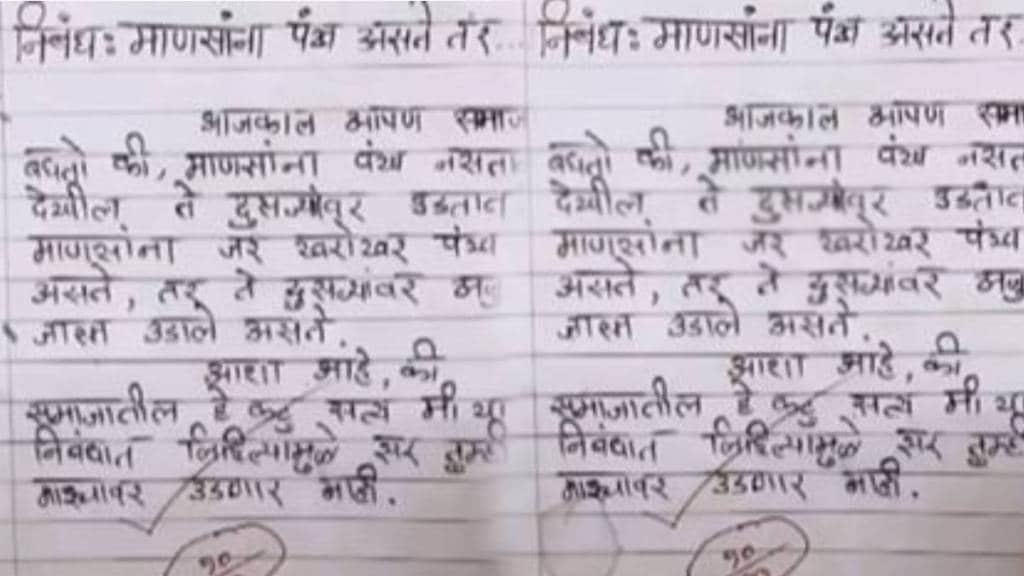 निबंध: माणसांना पंख असते तर...
आजकाल आपण समाज
बघतो की, माणसांना पंख नसता
देखील ते दुसऱ्यांवर उडतात
माणसांना जर खरोखर पंख
असते, तर ते दुसऱ्यांवर अजु
जास्त उडाले असते.
आशा आहे, की
समाजातील हे कटु सत्य मी या
निबंधात लिहिल्यामुळे सर तुम्ही
माझ्यावर उडणार नाही.
१०
निबंध: माणसांना पंख असते तर.
आजकाल आपण समा
बघतो की, माणसांना पंख नसत
देखील ते दुसऱ्यांवर उडतात
माणसांना जर खरोखर पंख
असते, तर ते दुसऱ्यांवर अजु
जास्त उडाले असते.
आशा आहे, की
समाजातील हे कटु सत्य मी या
निबंधात लिहिल्यामुळे सर तुम्ही
माझ्यावर उडणार नाही.
१०